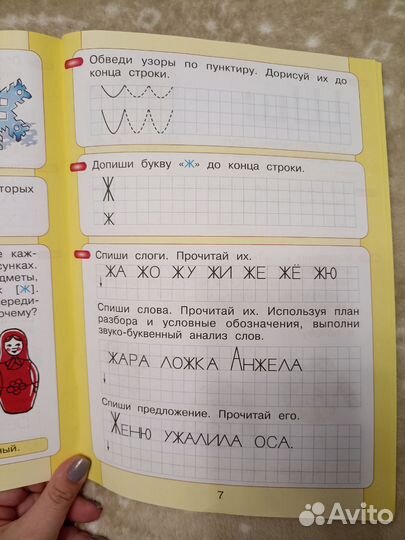 Обведи узоры по пунктиру. Дорисуй их до
конца строки.
Допиши букву «Ж» до конца строки.
Ж
ж
торых
е каж-
сунках.
едметы,
к [Ж].
ереди-
очему?
ный.
Спиши слоги. Прочитай их.
ЖА ЖО ЖУ ЖИ ЖЕ ЖЁ ЖЮ
Спиши слова. Прочитай их. Используя план
разбора и условные обозначения, выполни
звуко-буквенный анализ слов.
ЖАРА ЛОЖКА АНЖЕЛА
Спиши предложение. Прочитай его.
ЖЕНЮ УЖАЛИЛА ОСА.
7
Avito